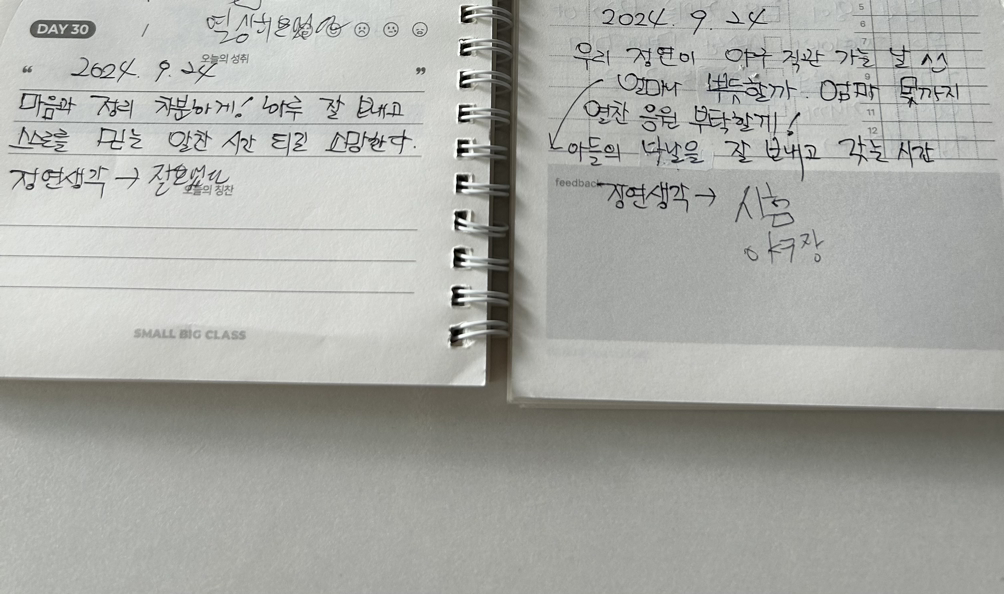 DAY 30
오늘의 성취
" 2024. 9. 24 "
마음과 정리 차분하게! 하루 잘 보내고
스스로를 믿는 알찬 시간 되길 소망한다.
정연생각 →
오늘의 칭찬
SMALL BIG CLASS
2024. 9. 24
우리 정연이 야구 직관 가는 날 ^^
얼마나 뿌듯할까. 엄마 몫까지
열찬 응원 부탁할게!
아들의 나날을 잘 보내고 갖는 시간
feedback
정연생각 → 시험
야구장
5
6
7
8
9
11
12